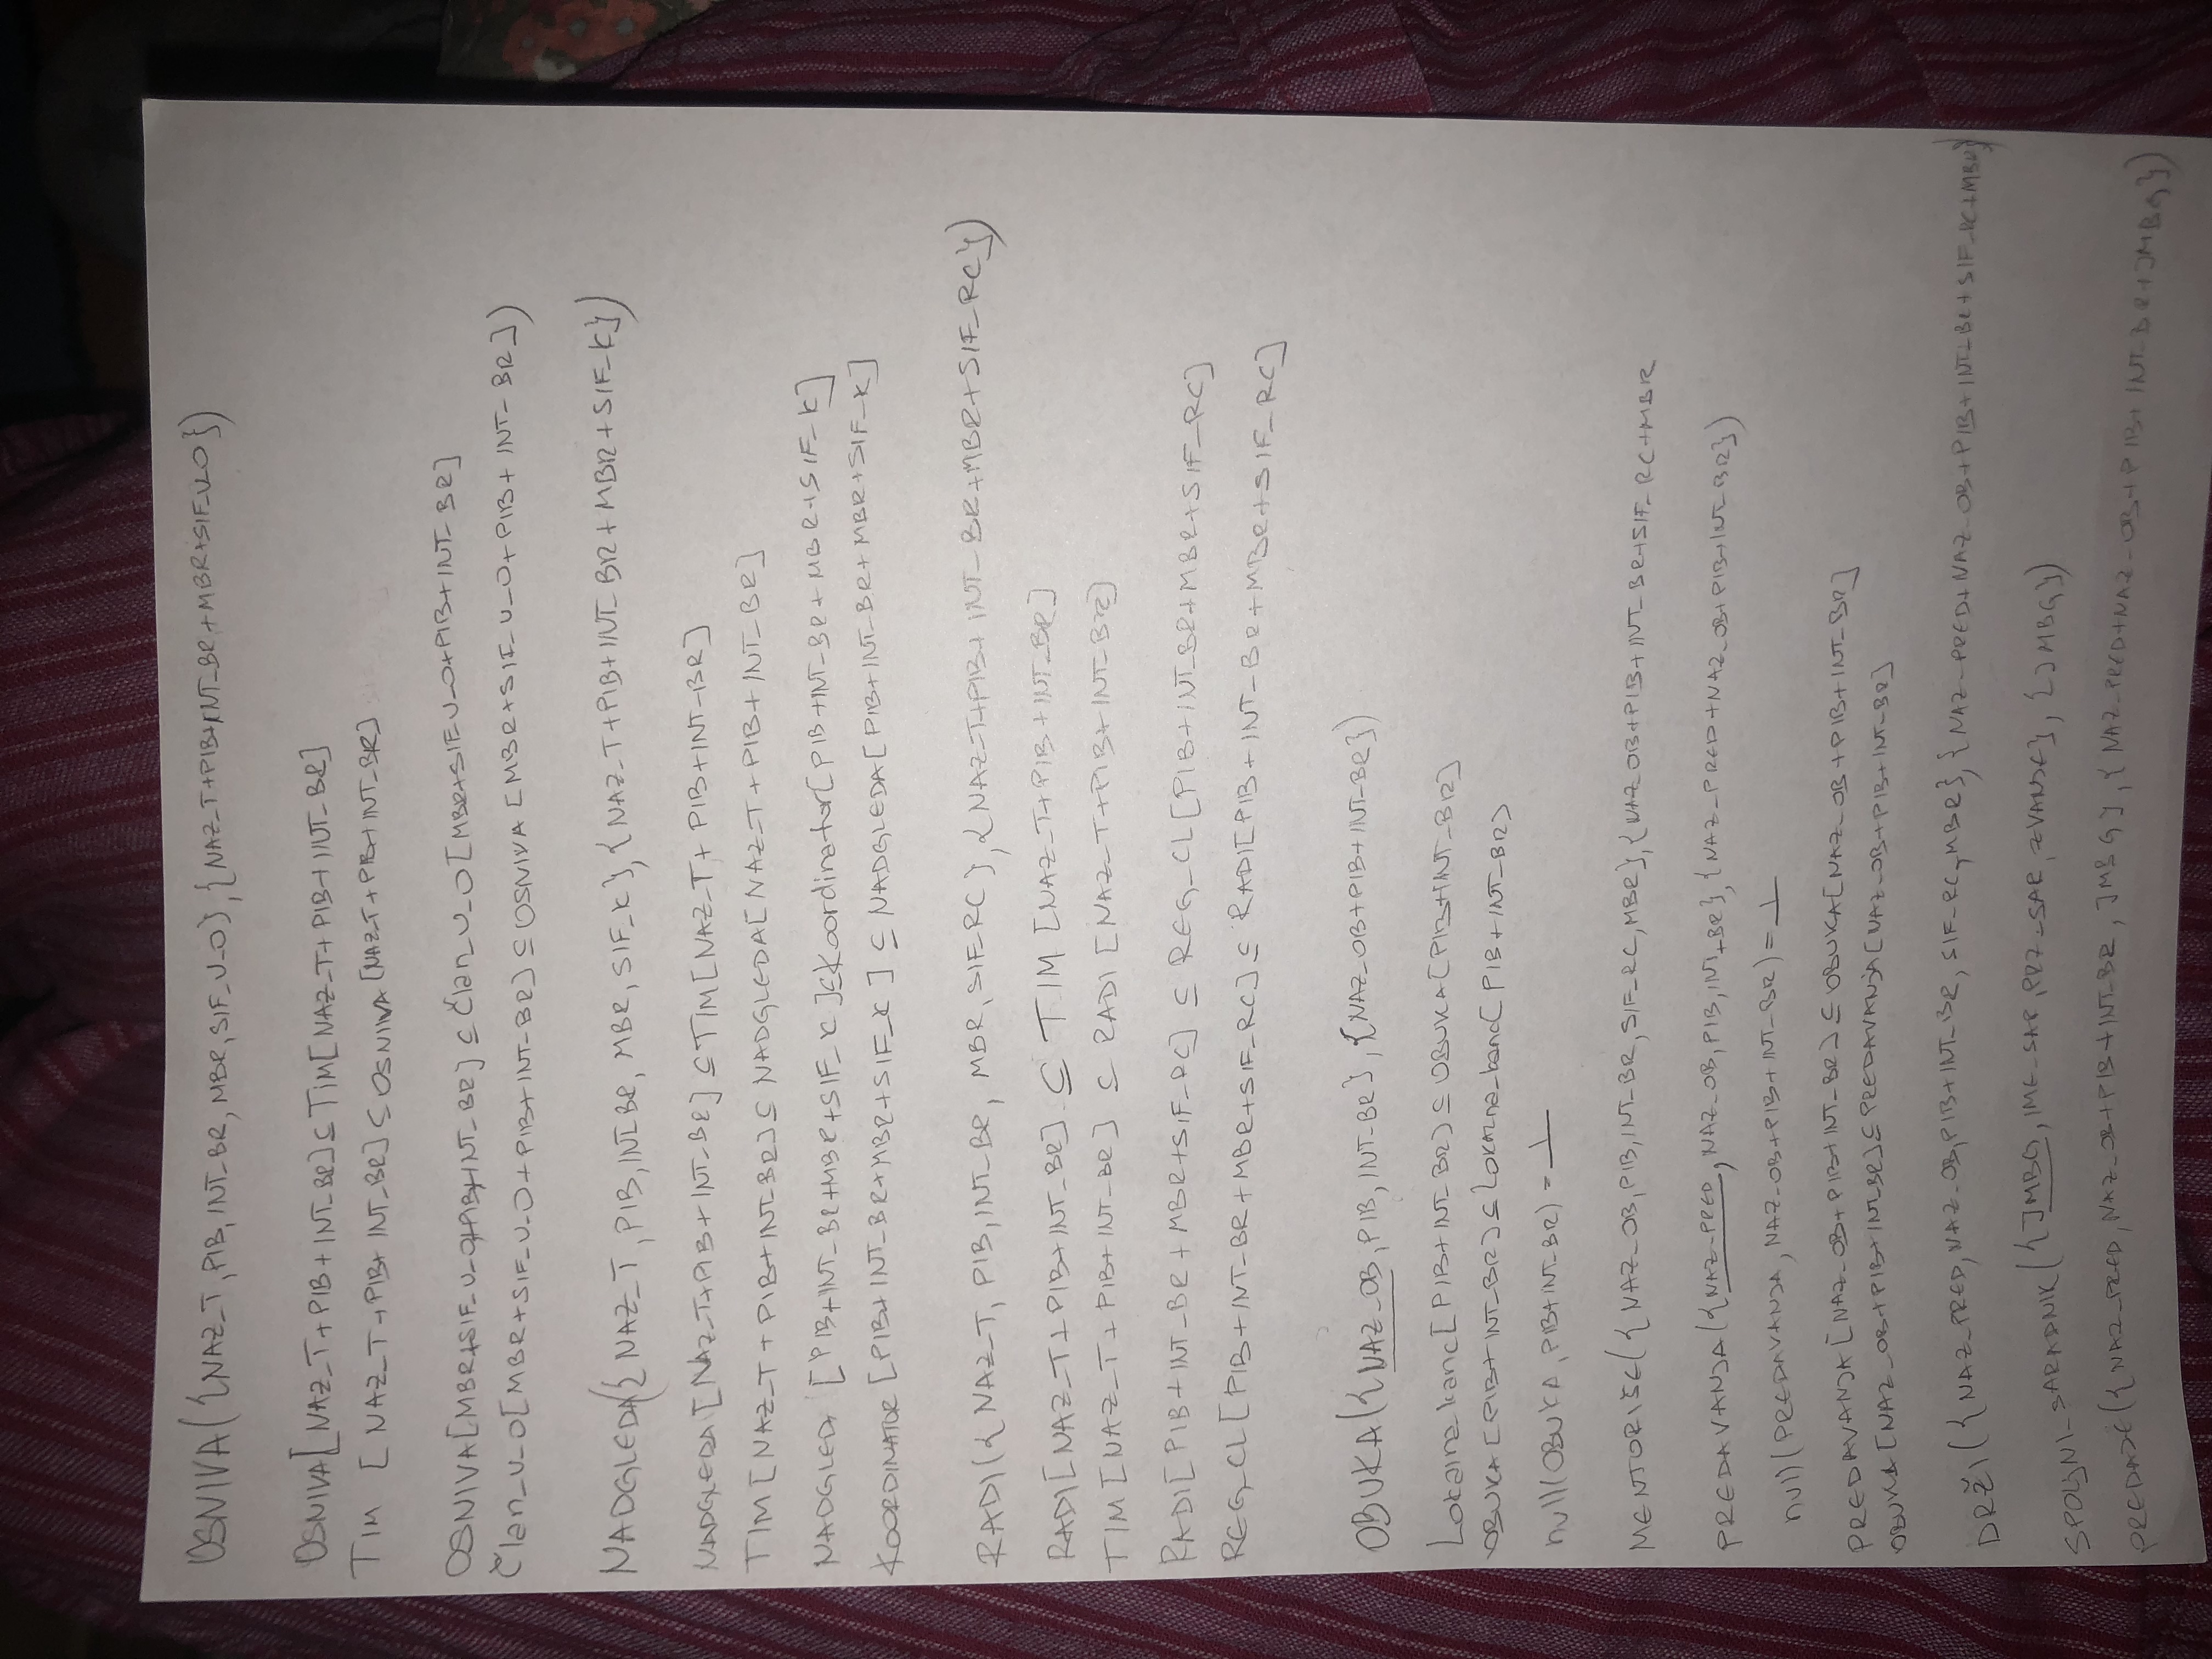 OSNIVA({NAZ_T, PIB, INT_BR, MBR, SIF_U_O}, {NAZ_T+PIB+INT_BR+MBR+SIF_U_O})
OSNIVA[NAZ_T+PIB+INT_BR]⊆TIM[NAZ_T+PIB+INT_BR]
TIM [NAZ_T+PIB+INT_BR]⊆OSNIVA[NAZ_T+PIB+INT_BR]
OSNIVA[MBR+SIF_U_O+PIB+INT_BR]⊆Član_U_O[MBR+SIF_U_O+PIB+INT_BR]
Član_U_O[MBR+SIF_U_O+PIB+INT_BR]⊆OSNIVA[MBR+SIF_U_O+PIB+INT_BR])
NADGLEDA({NAZ_T, PIB, INT_BR, MBR, SIF_K}, {NAZ_T+PIB+INT_BR+MBR+SIF_K})
NADGLEDA[NAZ_T+PIB+INT_BR]⊆TIM[NAZ_T+PIB+INT_BR]
TIM[NAZ_T+PIB+INT_BR]⊆NADGLEDA[NAZ_T+PIB+INT_BR]
NADGLEDA [PIB+INT_BR+MBR+SIF_K]⊆Koordinator[PIB+INT_BR+MBR+SIF_K]
KOORDINATOR[PIB+INT_BR+MBR+SIF_K]⊆NADGLEDA[PIB+INT_BR+MBR+SIF_K]
RADI({NAZ_T, PIB, INT_BR, MBR, SIF_RC}, {NAZ_T+PIB+INT_BR+MBR+SIF_RC})
RADI[NAZ_T+PIB+INT_BR] ⊆ TIM [NAZ_T+PIB+INT_BR]
TIM [NAZ_T+PIB+INT_BR] ⊆ RADI [NAZ_T+PIB+INT_BR]
RADI[PIB+INT_BR+MBR+SIF_RC] ⊆ REG_CL[PIB+INT_BR+MBR+SIF_RC]
REG_CL[PIB+INT_BR+MBR+SIF_RC]⊆ RADI[PIB+INT_BR+MBR+SIF_RC]
OBUKA({NAZ_OB, PIB, INT_BR}, {NAZ_OB+PIB+INT_BR})
Lokalna_kanc[PIB+INT_BR]⊆OBUKA[PIB+INT_BR]
OBUKA[PIB+INT_BR]⊆Lokalna_kanc[PIB+INT_BR]
null(OBUKA, PIB+INT_BR)=⊥
MENTORIŠE({NAZ_OB, PIB, INT_BR, SIF_RC, MBR}, {NAZ_OB+PIB+INT_BR+SIF_RC+MBR
PREDAVANJA({NAZ_PRED, NAZ_OB, PIB, INT_BR}, {NAZ_PRED+NAZ_OB+PIB+INT_BR})
null(PREDAVANJA, NAZ_OB+PIB+INT_BR)=⊥
PREDAVANJA[NAZ_OB+PIB+INT_BR]⊆OBUKA[NAZ_OB+PIB+INT_BR]
OBUKA[NAZ_OB+PIB+INT_BR]⊆PREDAVANJA[NAZ_OB+PIB+INT_BR]
DRŽI({NAZ_PRED, NAZ_OB, PIB+INT_BR, SIF_RC, MBR}, {NAZ_PRED+NAZ_OB+PIB+INT_BR+SIF_RC+MBR}
SPOLJNI_SARADNIK({JMBG, IME_SAR, PRZ_SAR, ZVANJE}, {JMBG})
PREDAJE({NAZ_PRED, NAZ_OB+PIB+INT_BR, JMBG}, {NAZ_PRED+NAZ_OB+PIB+INT_BR+JMBG})